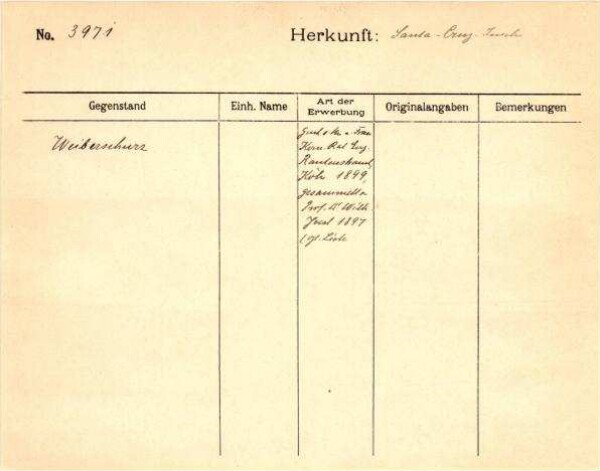 No. 3971 Herkunft: Santa-Cruz-Inseln
Gegenstand Einh. Name Art der Erwerbung Originalangaben Bemerkungen
Weiberschurz
Frau
Kom. Rat Eug.
Rautenstrauch,
Köln 1899,
gesammelt v.
Prof. Dr. Wilh.
Joest 1897
lgl. Liste